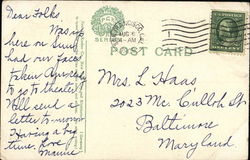 Dear Folks.
Was up
here on Sun
had our face
taken. Already
to go to theater
Will send
letter to-morrow
Having a big
time. Love
Mamie
POST CARD
Mrs. L Haas
2023 Mc. Culloh St
Baltimore
Maryland